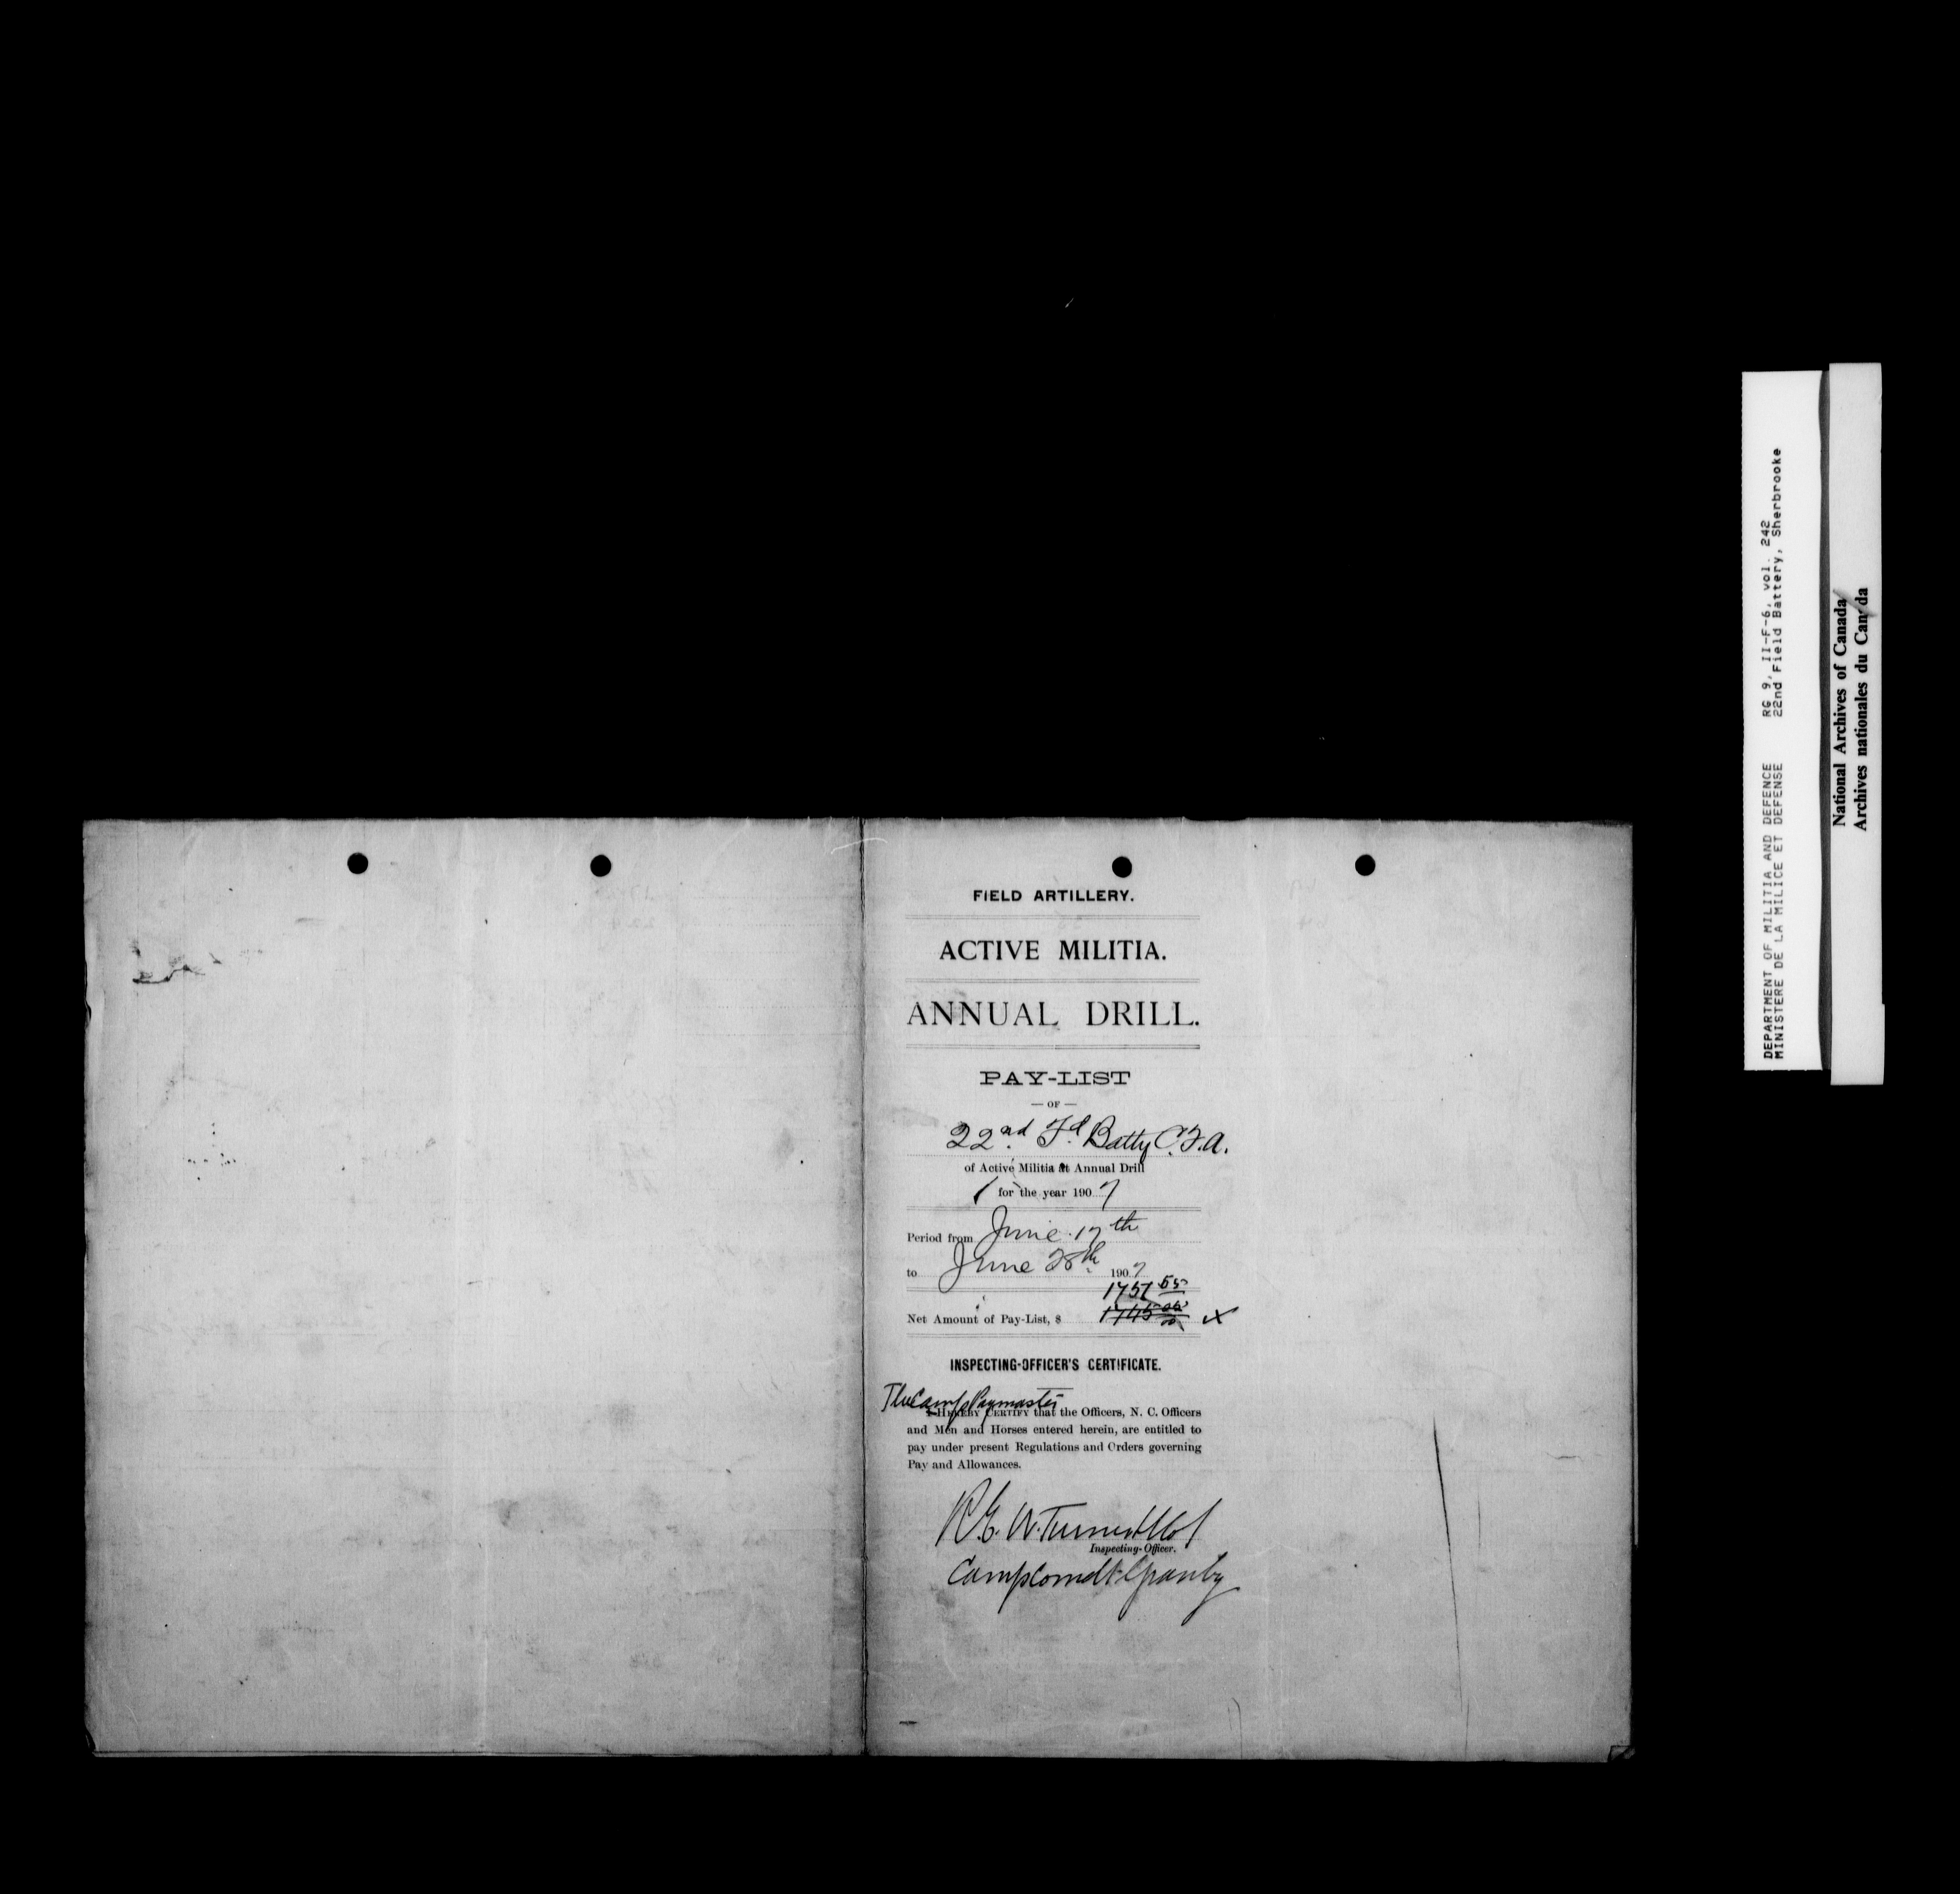 FIELD ARTILLERY.
ACTIVE MILITIA.
ANNUAL DRILL.
PAY-LIST
— OF —
22nd Fd Batty C.F.A.
of Active Militia at Annual Drill
for the year 1907
Period from June 17th
to June 28th 1907
1751 55
Net Amount of Pay-List, $
INSPECTING-OFFICER'S CERTIFICATE.
The Camp Paymaster
HEREBY CERTIFY that the Officers, N. C. Officers
and Men and Horses entered herein, are entitled to
pay under present Regulations and Orders governing
Pay and Allowances.
R.E.W. Turner Lt Col
Inspecting-Officer.
Camp Comdt Granby
DEPARTMENT OF MILITIA AND DEFENCE RG 9, II-F-6, vol. 242
MINISTERE DE LA MILICE ET DEFENSE 22nd Field Battery, Sherbrooke
National Archives of Canada
Archives nationales du Canada